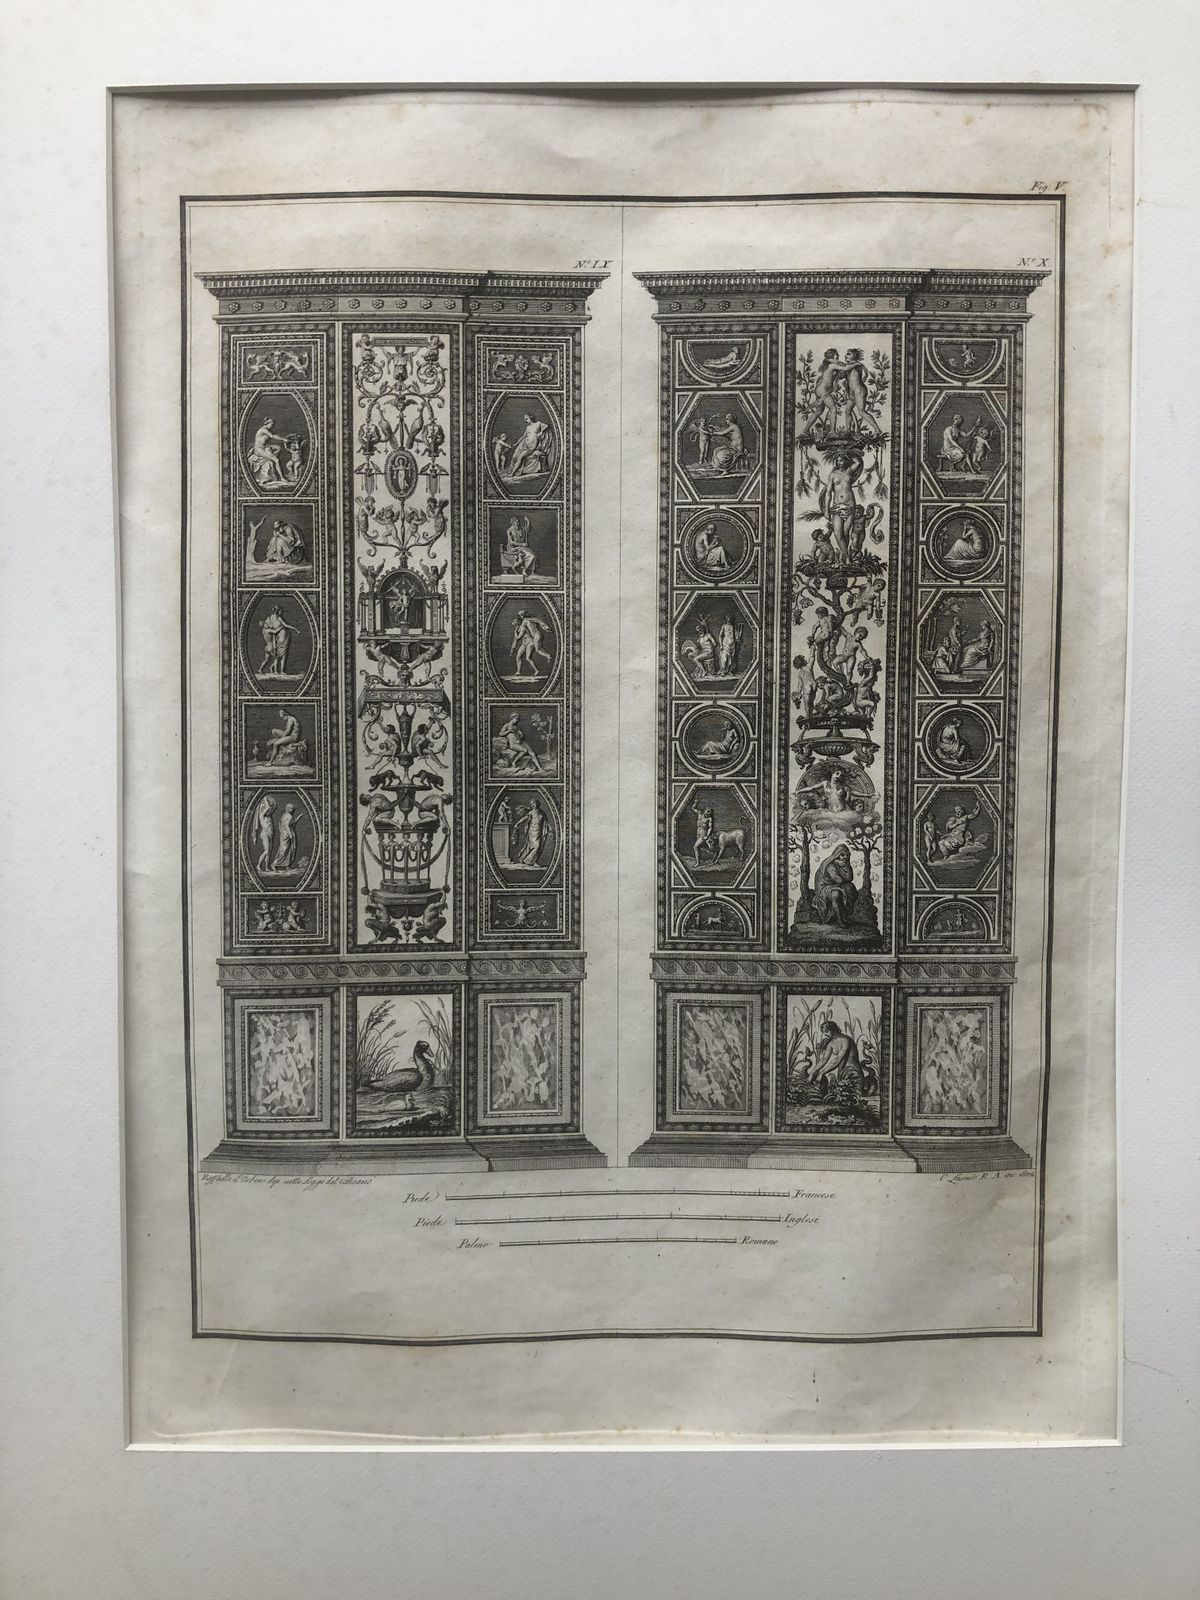 Fig. V.
N.º IX
N.º X
Raffaelle d'Urbino dip. nelle Logge del Vaticano
C. Lasinio R. A. inc. 1802
Piede Francese
Piede Inglese
Palmo Romano